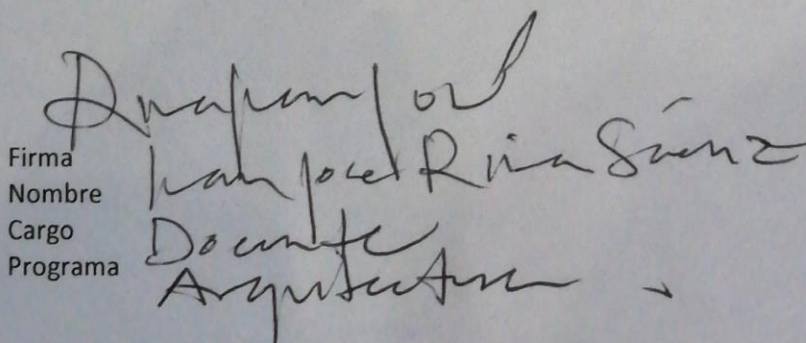 Firma
Nombre Juan José Riva Sáenz
Cargo Docente
Programa Arquitectura